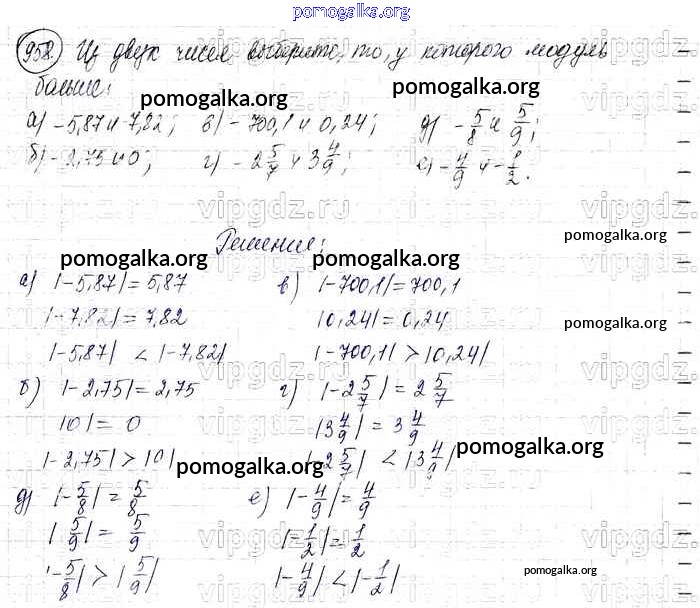 pomogalka.org
958. Из двух чисел выберите, то, у которого модуль
больше:
pomogalka.org pomogalka.org
а) -5,87 и -7,82; в) -700,1 и 0,24; д) -5/8 и 5/9;
б) -2,75 и 0; г) -2 5/7 и 3 4/9; е) -4/9 и -1/2.
vipgdz.ru vipgdz.ru vipgdz.ru
Решение:
pomogalka.org
pomogalka.org pomogalka.org
а) |-5,87| = 5,87 в) |-700,1| = 700,1
|-7,82| = 7,82 |0,24| = 0,24
pomogalka.org
|-5,87| < |-7,82| |-700,1| > |0,24|
vipgdz.ru vipgdz.ru vipgdz.ru
б) |-2,75| = 2,75 г) |-2 5/7| = 2 5/7
|0| = 0 |3 4/9| = 3 4/9
pomogalka.org
|-2,75| > |0| |-2 5/7| < |3 4/9|
pomogalka.org
д) |-5/8| = 5/8 е) |-4/9| = 4/9
|5/9| = 5/9 |-1/2| = 1/2
vipgdz.ru vipgdz.ru vipgdz.ru
|-5/8| > |5/9| |-4/9| < |-1/2|
pomogalka.org